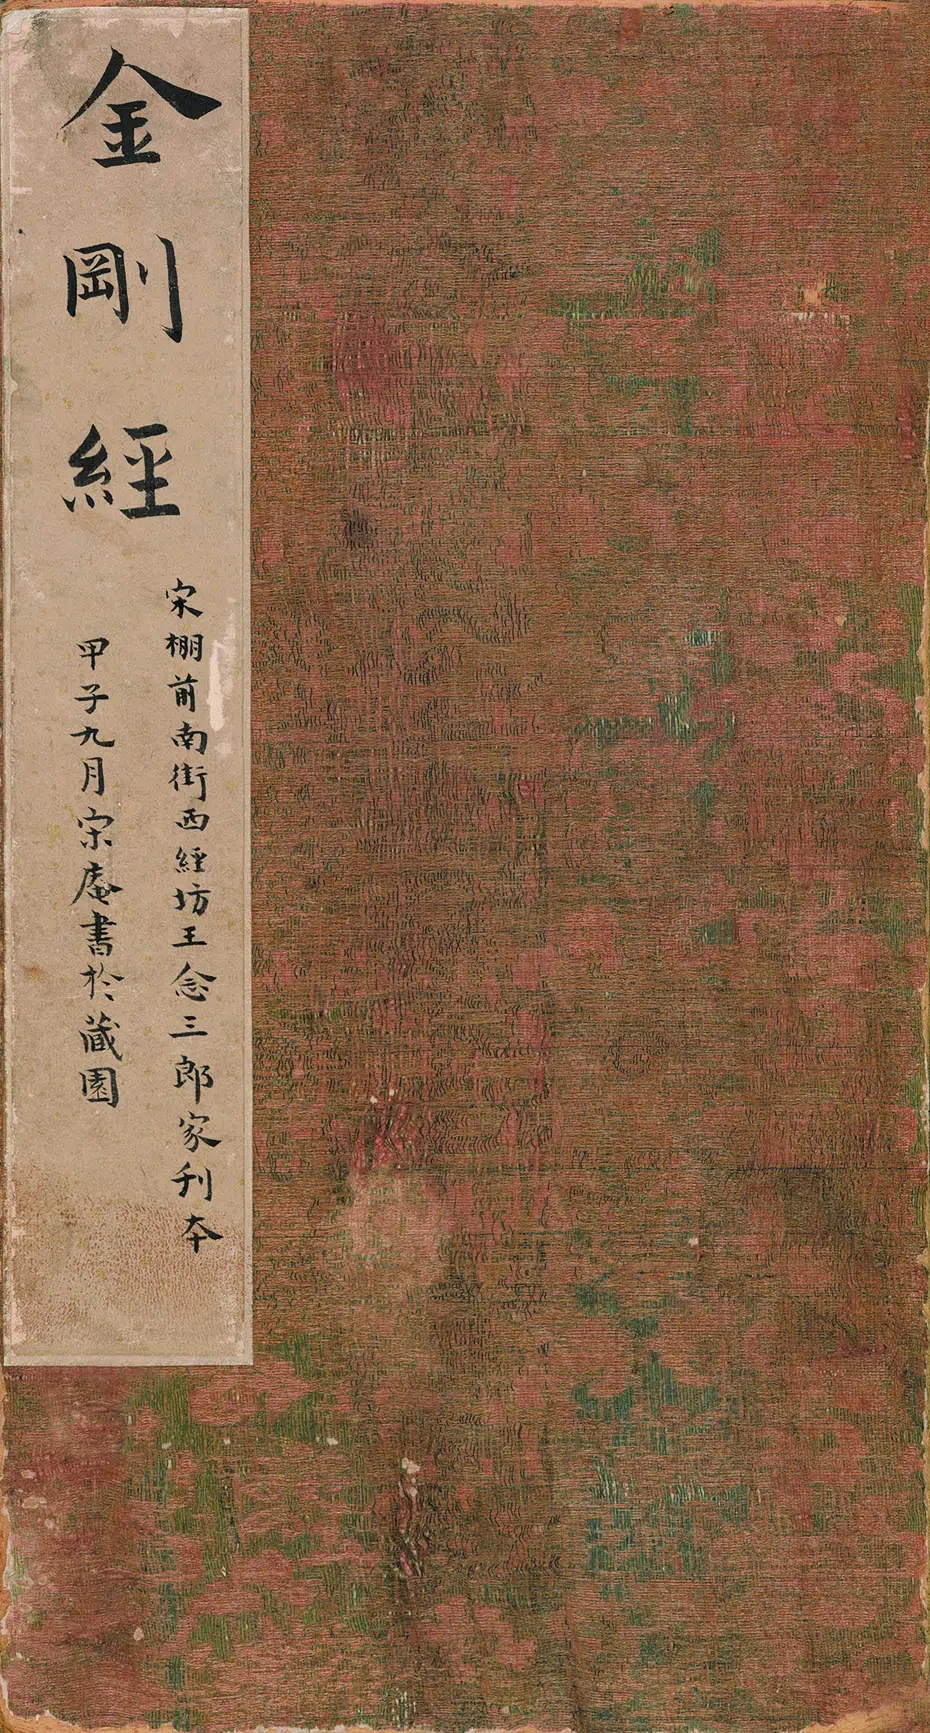 金剛經
宋棚前南街西經坊王念三郎家刋本
甲子九月宗庵書於藏園